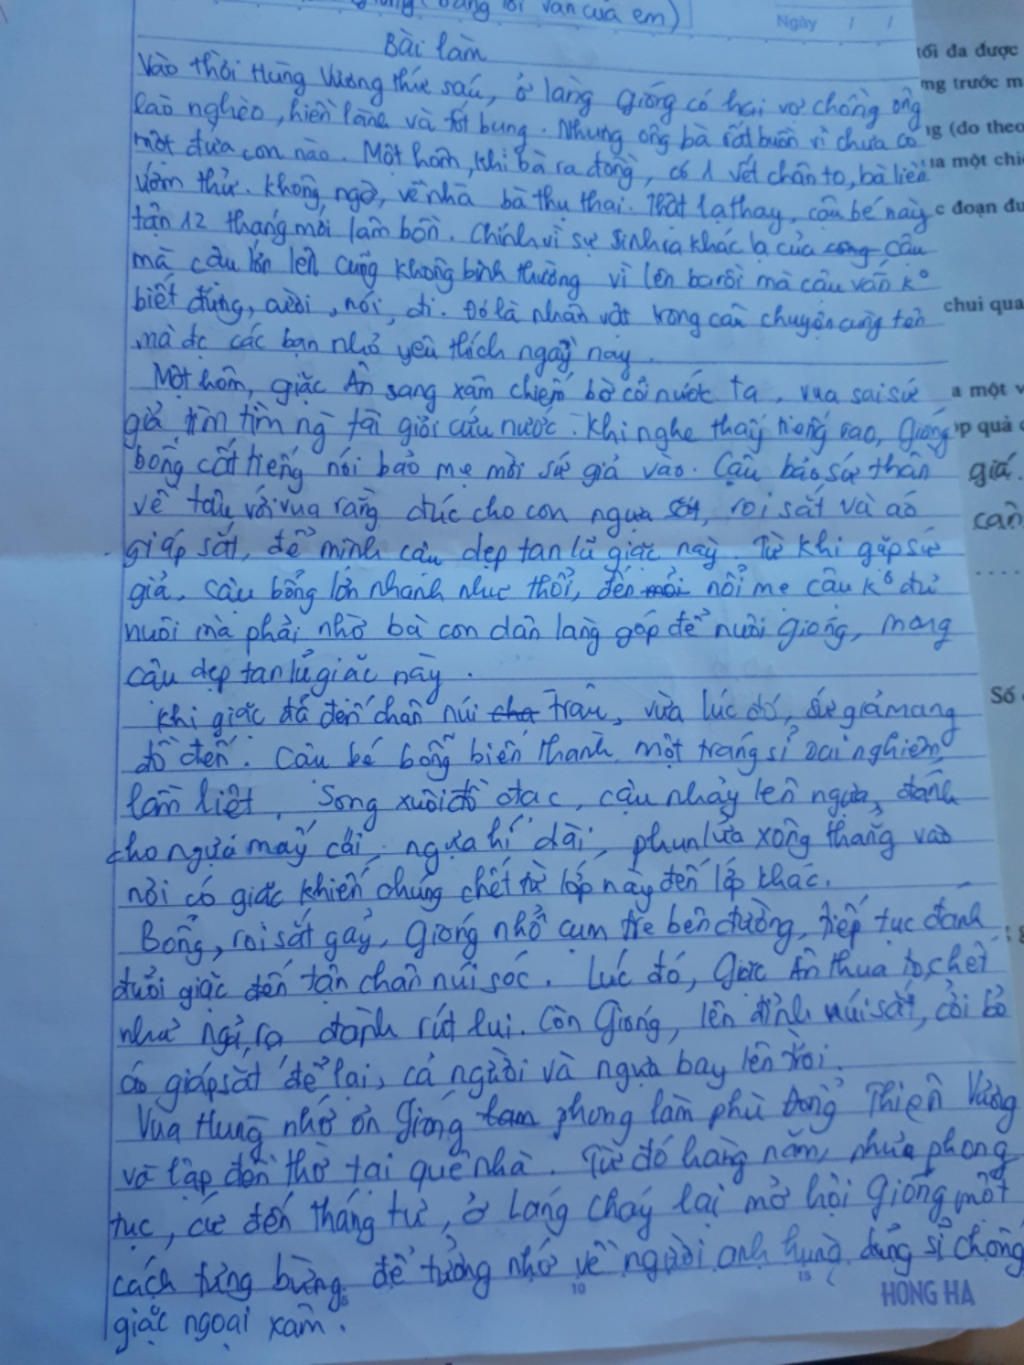 (bằng lời văn của em)
Ngày / /
Bài làm
Vào thời Hùng Vương thứ sáu, ở làng Gióng có hai vợ chồng ông
lão nghèo, hiền lành và tốt bụng. Nhưng ông bà rất buồn vì chưa có
một đứa con nào. Một hôm, khi bà ra đồng, có 1 vết chân to, bà liền
ướm thử. Không ngờ, về nhà bà thụ thai. Thật lạ thay, cậu bé này
tận 12 tháng mới lâm bồn. Chính vì sự sinh ra khác lạ của cậu
mà cậu lớn lên cũng không bình thường vì lên ba rồi mà cậu vẫn ko
biết đứng, cười, nói, đi. Đó là nhân vật trong câu chuyện cùng tên
mà đc các bạn nhỏ yêu thích ngày nay.
Một hôm, giặc Ân sang xâm chiếm bờ cõi nước ta, vua sai sứ
giả tìm ng tài giỏi cứu nước. Khi nghe thấy tiếng rao, Gióng
bỗng cất tiếng nói bảo mẹ mời sứ giả vào. Cậu bảo sứ thần
về tâu với vua rằng đúc cho con ngựa sắt, roi sắt và áo
giáp sắt, để mình cậu dẹp tan lũ giặc này. Từ khi gặp sứ
giả, cậu bỗng lớn nhanh như thổi, đến nỗi mẹ cậu ko đủ
nuôi mà phải nhờ bà con dân làng góp để nuôi Gióng, mong
cậu dẹp tan lũ giặc này.
Khi giặc đã đến chân núi Trâu, vừa lúc đó, sứ giả mang
đồ đến. Cậu bé bỗng biến thành một tráng sĩ oai nghiêm,
lẫm liệt. Song xuôi đồ đạc, cậu nhảy lên ngựa, đánh
cho ngựa mấy cái, ngựa hí dài, phun lửa xông thẳng vào
nơi có giặc khiến chúng chết từ lớp này đến lớp khác.
Bỗng, roi sắt gãy, Gióng nhổ cụm tre bên đường, tiếp tục đánh
đuổi giặc đến tận chân núi sóc. Lúc đó, giặc Ân thua to, chết
như ngả rạ đành rút lui. Còn Gióng, lên đỉnh núi sắt, cởi bỏ
áo giáp sắt để lại, cả người và ngựa bay lên trời.
Vua Hùng nhớ ơn Gióng phong làm phù Đổng Thiên Vương
và lập đền thờ tại quê nhà. Từ đó hàng năm, như phong
tục, cứ đến tháng tư, ở Làng cháy lại mở hội Gióng một
cách tưng bừng để tưởng nhớ về người anh hùng dũng sĩ chống
giặc ngoại xâm.
10
15
HONG HA
tối đa được
ng trước m
ng (đo theo
ủa một chi
c đoạn đư
chui qua
a một v
ợp quả
giá.
cân
Số